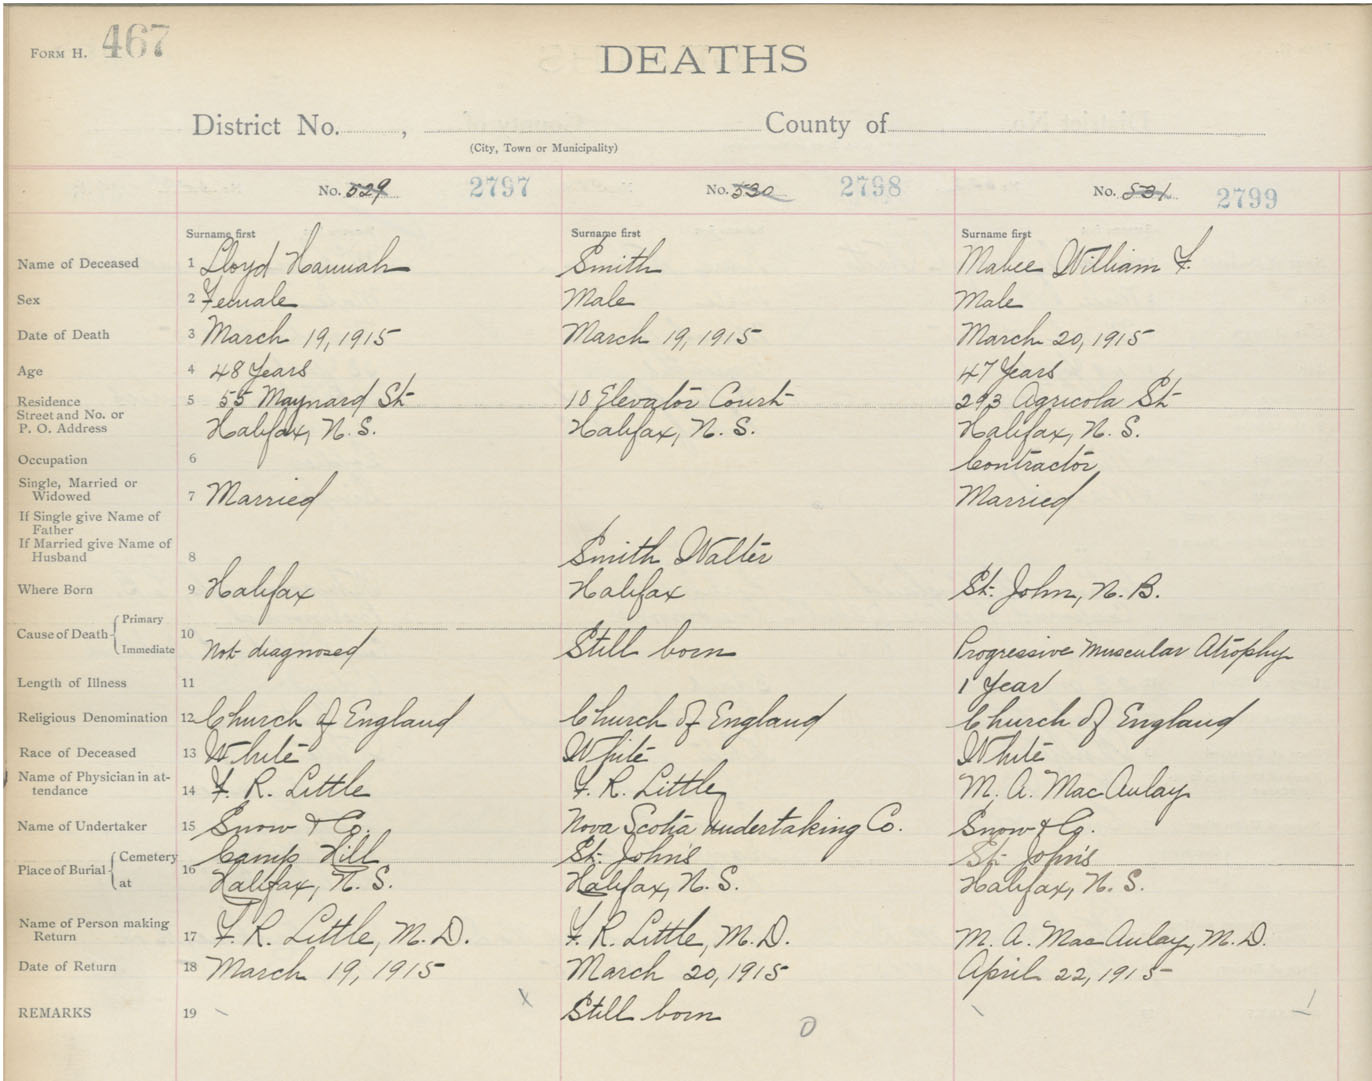 FORM H. 467
DEATHS
District No. , County of
(City, Town or Municipality)
No. 529 2797 No. 530 2798 No. 531 2799
Surname first Surname first Surname first
Name of Deceased 1 Lloyd Hannah Smith Mabee William F.
Sex 2 Female Male Male
Date of Death 3 March 19, 1915 March 19, 1915 March 20, 1915
Age 4 48 Years 47 Years
Residence 5 55 Maynard St 10 Elevator Court 293 Agricola St
Street and No. or
P. O. Address Halifax, N. S. Halifax, N. S. Halifax, N. S.
Occupation 6 Contractor
Single, Married or
Widowed 7 Married Married
If Single give Name of
Father
If Married give Name of
Husband 8 Smith Walter
Where Born 9 Halifax Halifax St. John, N. B.
Primary
Cause of Death 10
Immediate Not diagnosed Still born Progressive Muscular Atrophy
Length of Illness 11 1 Year
Religious Denomination 12 Church of England Church of England Church of England
Race of Deceased 13 White White White
Name of Physician in at-
tendance 14 F. R. Little F. R. Little M. A. MacAulay
Name of Undertaker 15 Snow & Co. Nova Scotia Undertaking Co. Snow & Co.
Cemetery Camp Hill St. John's St. John's
Place of Burial 16
at Halifax, N. S. Halifax, N. S. Halifax, N. S.
Name of Person making
Return 17 F. R. Little, M. D. F. R. Little, M. D. M. A. MacAulay, M. D.
Date of Return 18 March 19, 1915 March 20, 1915 April 22, 1915
REMARKS 19 Still born